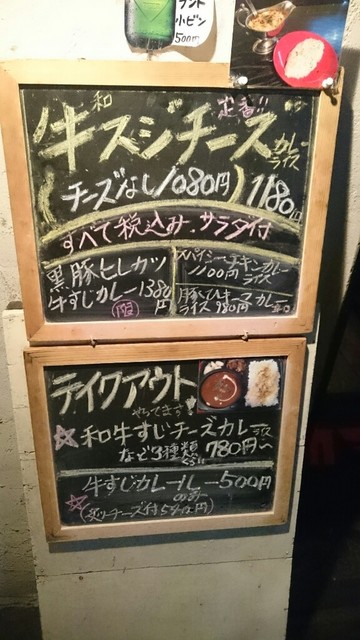 小ビン
500円
和
定番!!
牛スジチーズカレーライス
(チーズなし1080円) 1180円
すべて税込み.サラダ付
黒豚ヒレカツ
牛すじカレー1380円
限
スパイシーチキンカレー
ライス 1100円
豚ひきキーマカレー
ライス 980円
テイクアウト
やってます!
☆和牛すじチーズカレーライス
など3種類くらい 780円~
牛すじカレールー500円
のみ